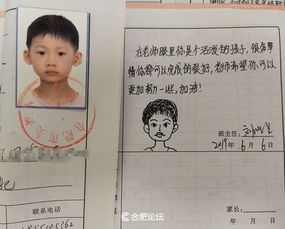 在老师眼里你是个活泼的孩子，很多事
情你都可以完成的很好，老师希望你可以
更加努力一些，加油！
班主任：
2019年 6月 6日
联系电话
家长：
年 月 日
合肥论坛